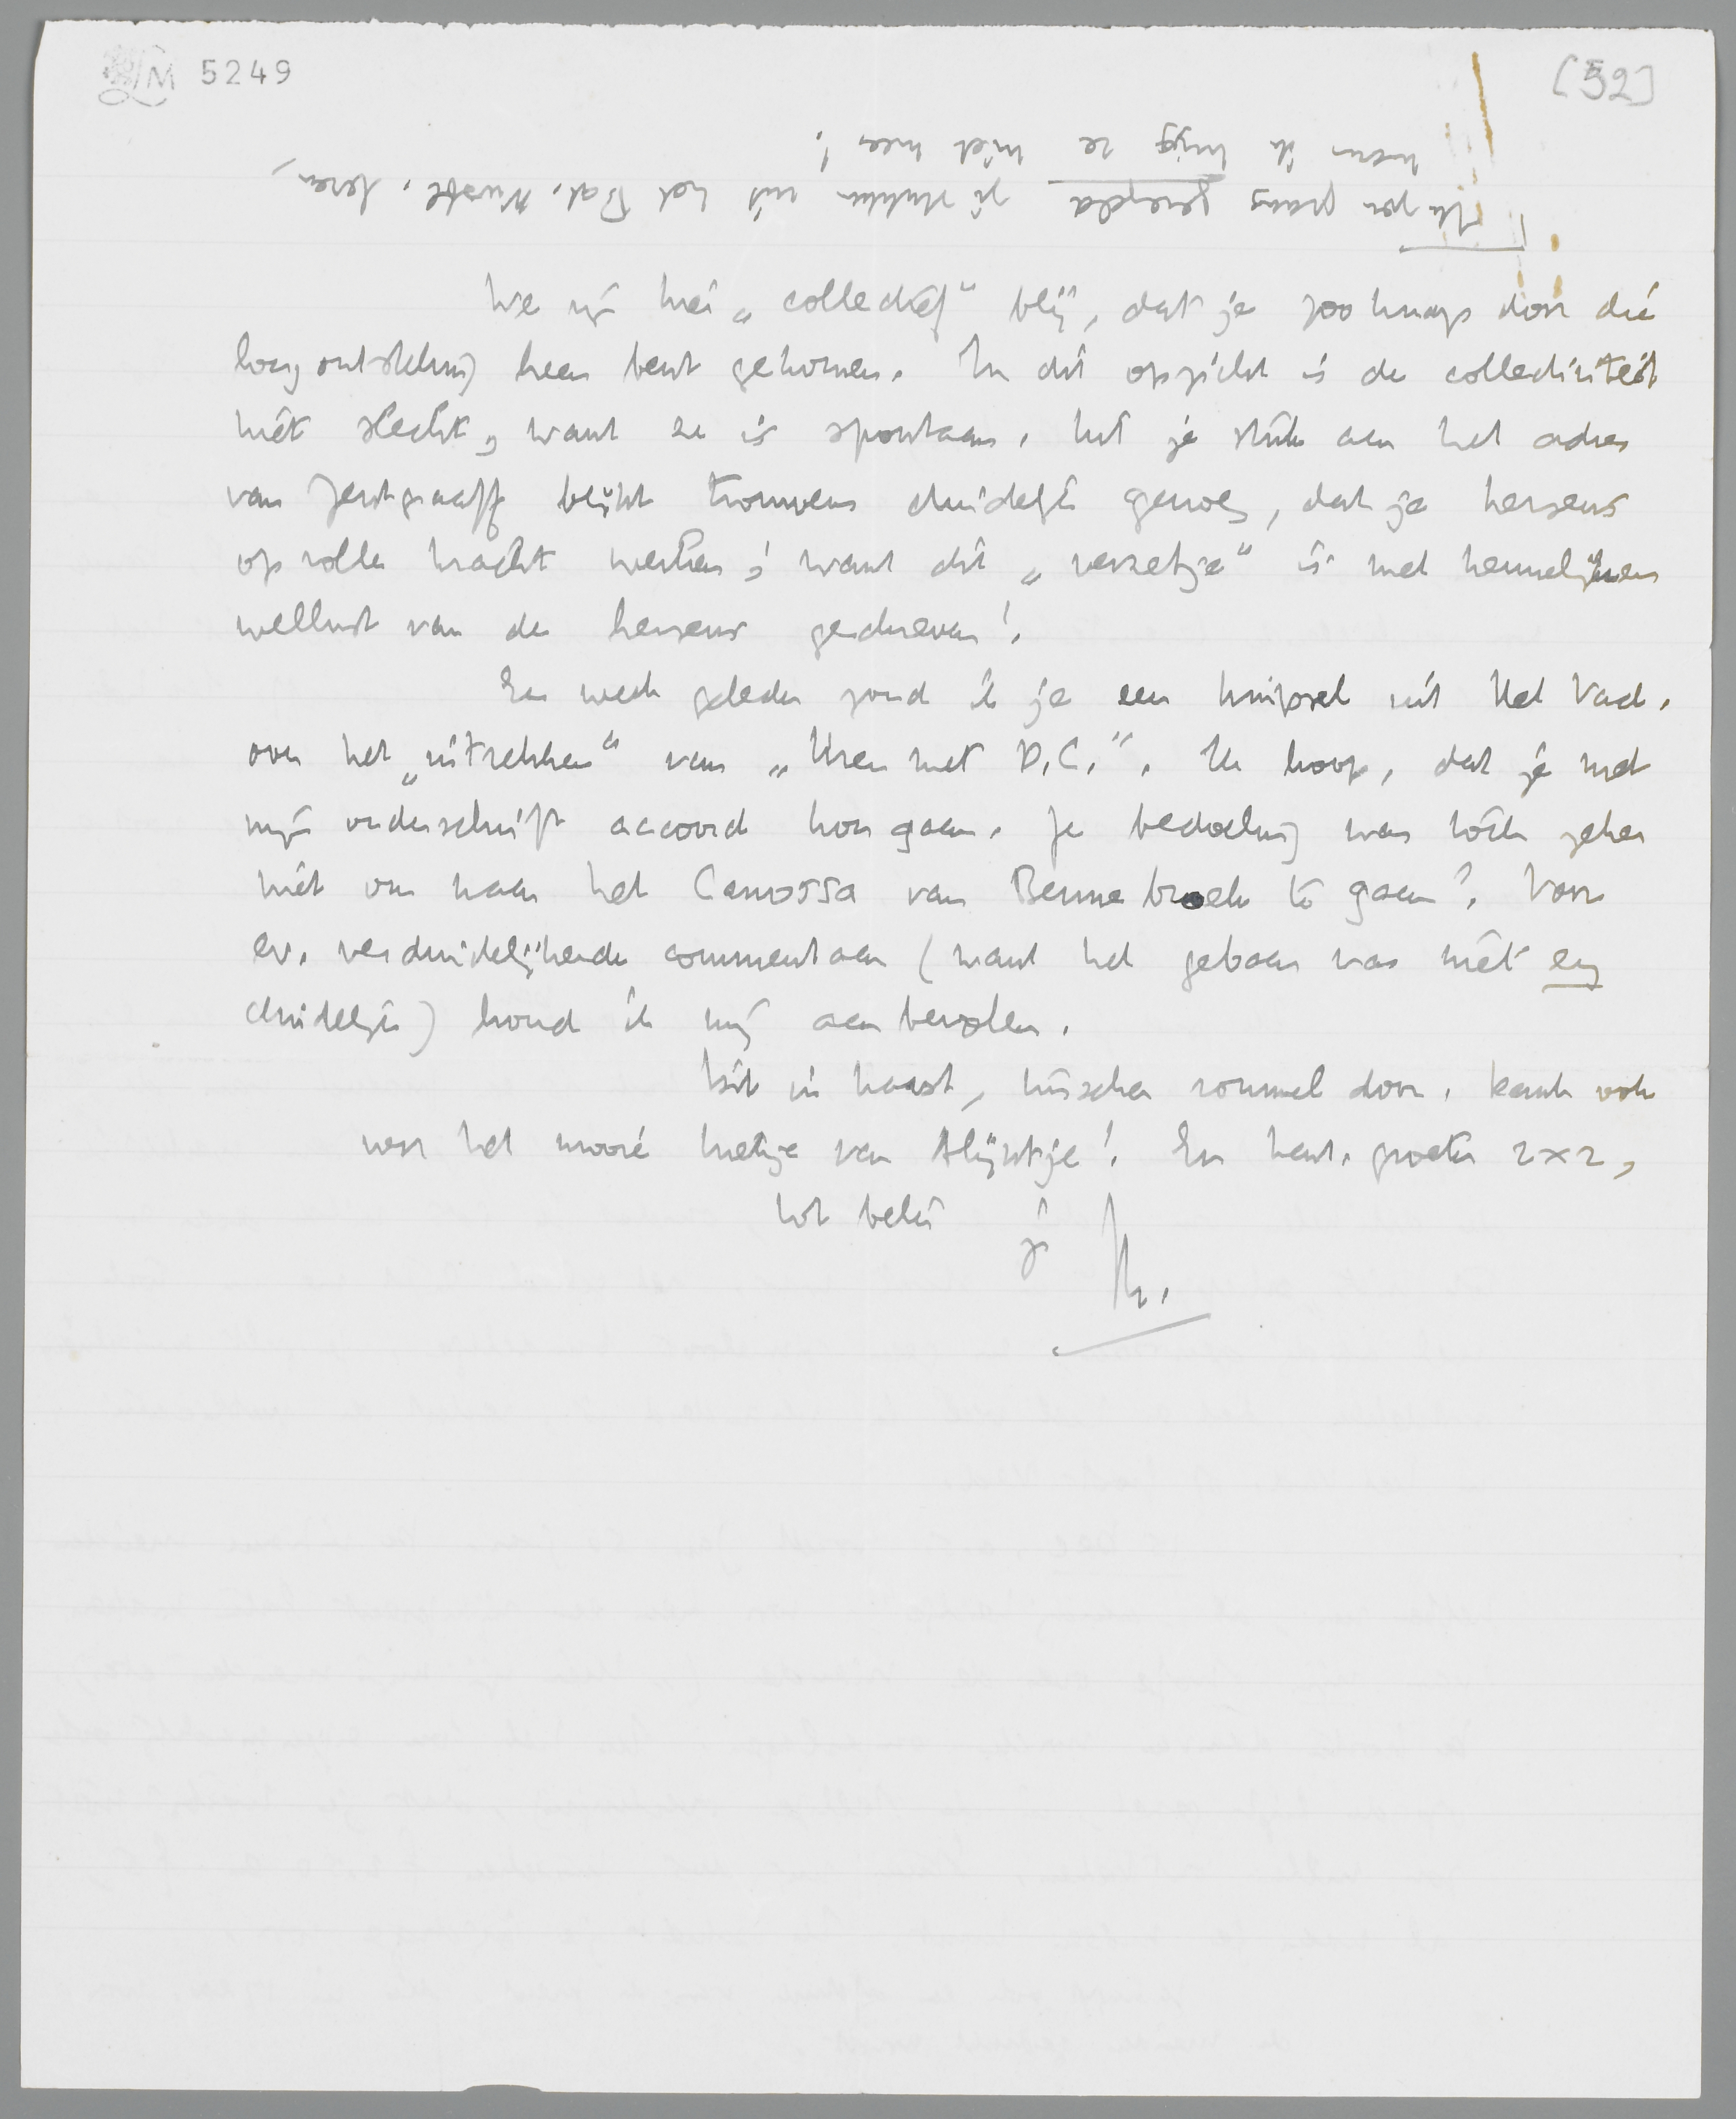 LM 5249
[52]
Ik zou graag geregeld je stukken uit het Bat. Nwsbl. lezen,
waarom ik krijg ze niet meer!
We zijn hier „collectief” blij, dat je zoo knap door die
loog ontsteking heen bent gekomen. In dit opzicht is de collectiviteit
niet slecht, want ze is spontaan. Uit je stuk aan het adres
van Zentgraaff blijkt trouwens duidelijk genoeg, dat je hersens
op volle kracht werken; want dit „verzetje” is met kennelijken
wellust van de hersens geschreven!
Een week geleden zond ik je een knipsel uit Het Vad.
over het „uittrekken” van „Uren met D.C.”. Ik hoop, dat je met
mijn onderschrift accoord kon gaan. Je bedoeling was tòch zeker
niet om naar het Canossa van Bennebroek te gaan? Voor
ev. verduidelijkende commentaar (want het gebaar was niet erg
duidelijk) houd ik mij aanbevolen.
Dit in haast, tusschen rommel door. Dank ook
voor het mooie kietje van Alijntje! En hart. groeten 2x2,
tot kijk
je
M.